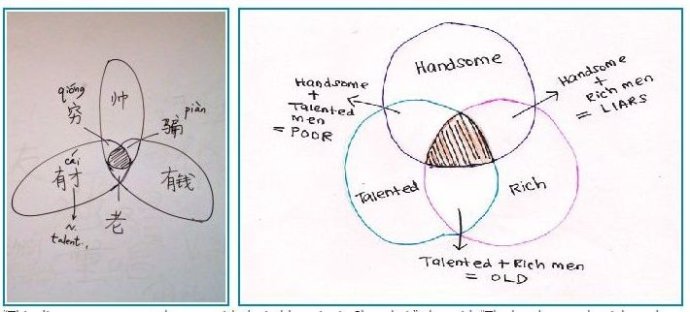 帅
qióng
穷
piàn
骗
cái
有才
有钱
talent.
老
Handsome
Handsome
+
Talented
men
= POOR
Handsome
+
Rich men
= LIARS
Talented
Rich
Talented + Rich men
= OLD